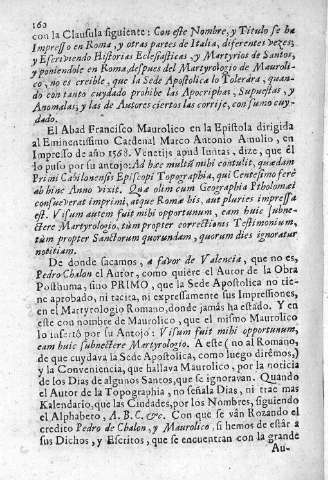 162
con la Clausula siguiente: Con este Nombre, y Titulo se ha
Impresso en Roma, y otras partes de Italia, diferentes vezes;
y Escriviendo Historias Eclesiasticas, y Martyrios de Santos,
y poniendole en Roma, despues del Martyrologio de Mauroli-
co, no es creible, que la Sede Apostolica lo Tolerára, quan-
do con tanto cuydado prohibe las Apocriphas, Supuestas, y
Anomalas; y las de Autores ciertos las corrije, con sumo cuy-
dado.
El Abad Francisco Maurolico en la Epistola dirigida
al Eminentissimo Cardenal Marco Antonio Amulio, en
Impresso de año 1568. Venetijs apud Iuntas, dize, que él
lo puso por su antojo: Ad hæc multa mihi contulit, quædam
Primi Cabilonensis Episcopi Topographia, qui Centesimo ferè
ab hinc Anno vixit. Quæ olim cum Geographia Ptholomæi
consueverat imprimi, atque Romæ bis, aut pluries impressa
est. Visum autem fuit mihi opportunum, eam huic subne-
ctere Martyrologio, tùm propter correctionis Testimonium,
tùm propter Sanctorum quorundam, quorum dies ignoratur
notitiam.
De donde sacamos, à favor de Valencia, que no es,
Pedro Chalon el Autor, como quiere el Autor de la Obra
Posthuma, sino PRIMO, que la Sede Apostolica no tie-
ne aprobado, ni tacita, ni expressamente sus Impressiones,
en el Martyrologio Romano, donde jamàs ha estado. Y en
este con nombre de Maurolico, que el mismo Maurolico
lo insertò por su Antojo: Visum fuit mihi opportunum,
eam huic subnectere Martyrologio. A este (no al Romano,
de que cuydava la Sede Apostolica, como luego dirèmos,)
y la Conveniencia, que hallava Maurolico, por la noticia
de los Dias de algunos Santos, que se ignoravan. Quando
el Autor de la Topographia, no señala Dias, ni trae mas
Kalendario, que las Ciudades, por los Nombres, siguiendo
el Alphabeto, A.B.C.&c. Con que se vàn Rozando el
credito Pedro de Chalon, y Maurolico, si hemos de estàr a
sus Dichos, y Escritos, que se encuentran con la grande
Au-